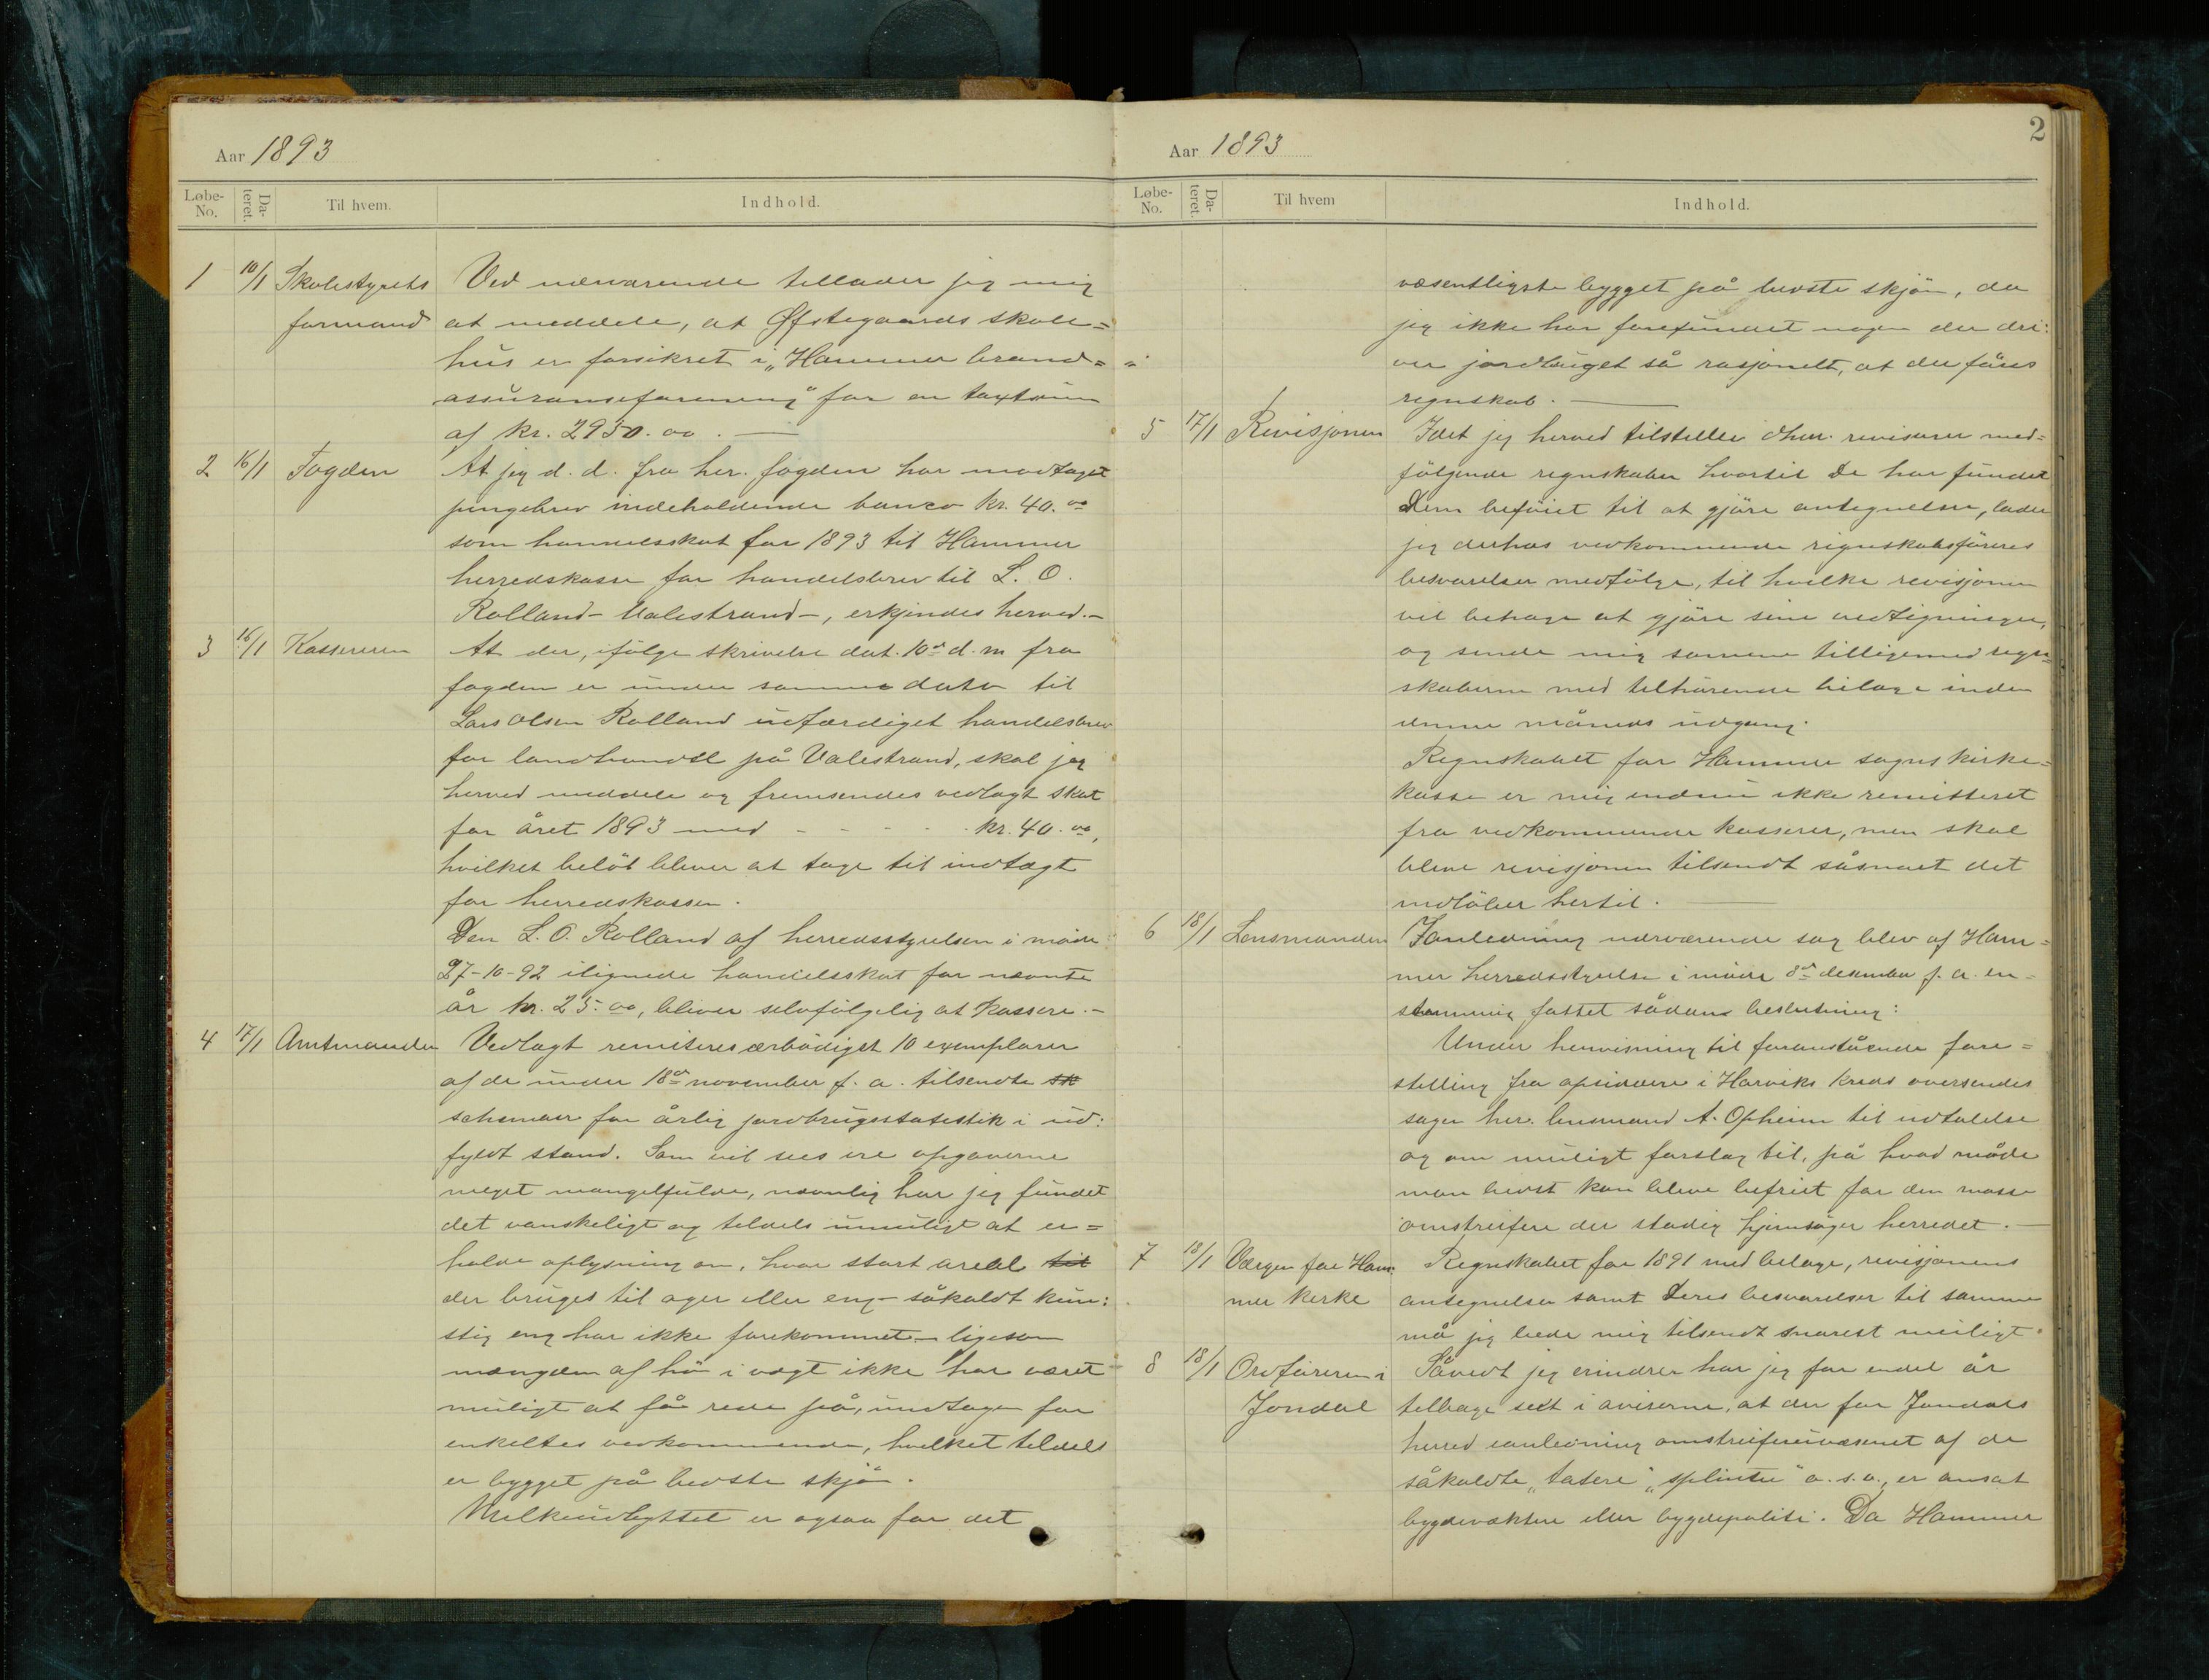 Aar 1893
Løbe-No. Da-teret. Til hvem. Indhold.
1 10/1 Skolestyrets Ved nærværende tillader jeg mig
formand at meddele, at Øfstegaards skole=
hus er forsikret i „Hammer brand=
assuranseforening" for en taxtsum
af kr. 2950.00.
2 16/1 Fogden At jeg d. d. fra her. fogden har modtaget
pengebrev indeholdende banco kr. 40.00
som handelsskat for 1893 til Hammer
herredskasse for handelsbrev til L. O.
Rolland - Valestrand -, erkjendes herved. -
3 16/1 Kassereren At der, ifølge skrivelse dat. 10de d. m fra
fogden er under samme dato til
Lars Olsen Rolland udfærdiget handelsbrev
for landhandel på Valestrand, skal jeg
herved meddele og fremsendes vedlagt skat
for året 1893 med - - - - - kr. 40.00,
hvilket beløb bliver at tage til indtægt
for herredskassen.
Den L. O. Rolland af herredsstyrelsen i møde
27-10-92 ilignede handelsskat for nævnte
år kr. 25.00, bliver selvfølgelig at kassere. -
4 17/1 Amtmanden Vedlagt remiteres ærbødigst 10 exemplarer
af de under 18de november f. a. tilsendte sk
schemaer for årlig jordbrugsstatestik i ud:
fyldt stand. Som vil sees ere opgaverne
meget mangelfulde, navnlig har jeg fundet
det vanskeligt og tildels umuligt at er=
holde oplysning om, hvor stort areal til
der bruges til ager eller eng - såkaldt kun:
stig eng har ikke forekommet - ligesom
mængden af hø i vægt ikke har været
muligt at få rede på, undtagen for
enkeltes vedkommende, hvilket tildels
er bygget på bedste skjøn.
Melkeudbyttet er ogsaa for det
Aar 1893
2
Løbe-No. Da-teret. Til hvem Indhold.
væsentligste bygget på bedste skjøn, da
jeg ikke har forefundet nogen der dri:
ver jordbruget så rasjonelt, at der føres
regnskab.
5 17/1 Revisjonen Idet jeg herved tilstiller dher. revisorer med=
følgende regnskaber hvortil De har fundet
Dem beføiet til at gjøre antegnelser, lader
jeg derhos vedkommende regnskabsføreres
besvarelser medfølge, til hvilke revisjonen
vil behage at gjøre sine
og sende mig samme tilligemed regn=
skaberne med tilhørende bilage inden
denne måneds udgang.
Regnskabet for Hammer sogns kirke=
kasse er mig endnu ikke remitteret
fra vedkommende kasserer, men skal
blive revisjonen tilsendt såsnart det
indløber hertil.
6 18/1 Lensmanden I anledning nærværende sag blev af Ham=
mer herredsstyrelse i møde 8de desember f. a. en=
stemmig fattet sådan beslutning:
Under henvisning til foranstående fore=
stilling fra opsiddere i Harviks kreds oversendes
sagen her. lensmand A. Opheim til udtalelse
og om muligt forslag til, på hvad måde
man bedst kan blive befriet for den masse
omstreifere der stadig hjemsøger herredet. -
7 18/1 Værgen for Ham: Regnskabet for 1891 med bilage, revisjonens
mer kirke antegnelser samt Deres besvarelser til samme
må jeg bede mig tilsendt snarest muligt.
8 18/1 Ordføreren i Såvidt jeg erindrer har jeg for endel år
Jondal tilbage seet i aviserne, at der for Jondals
herred ianledning omstreiferuvæsenet af de
såkaldte „tatere", „splinter" o. s. v., er ansat
bygdevæktere eller bygdepoliti. Da Hammer